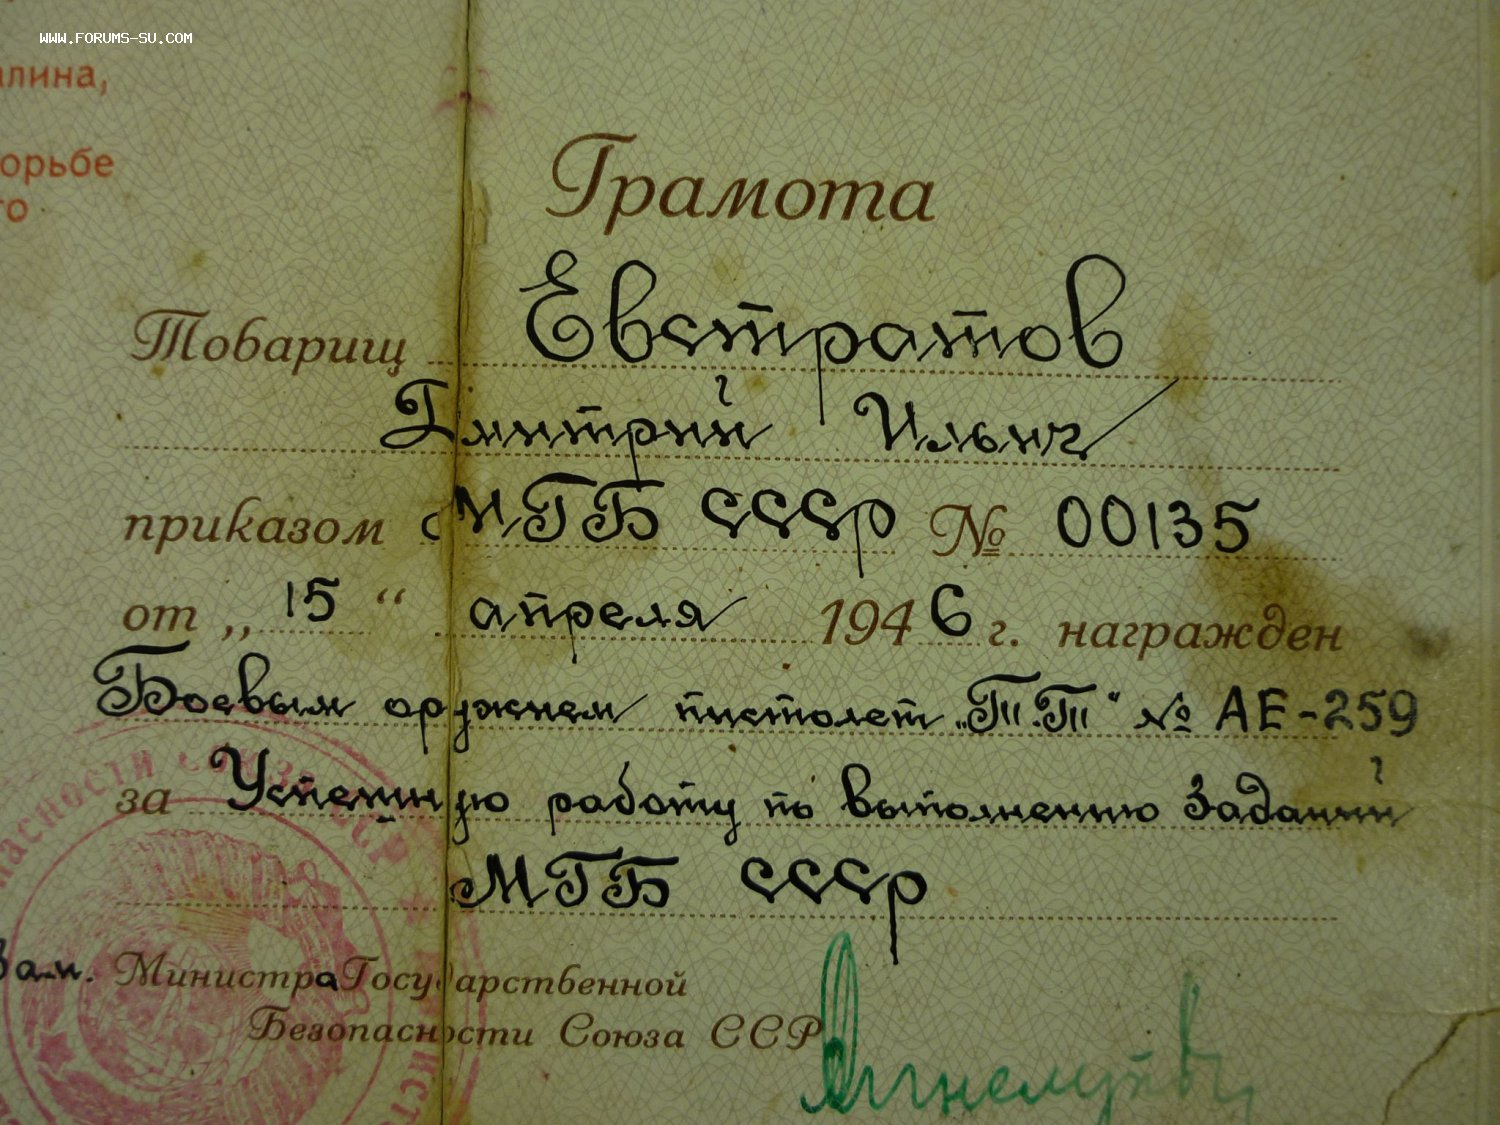 WWW.FORUMS-SU.COM
алина,
орьбе
го
Грамота
Товарищ Евстратов
Дмитрий Ильич
приказом МГБ СССР № 00135
от „ 15 “ апреля 1946 г. награжден
Боевым оружием пистолет „Т.Т" № АЕ-259
за Успешную работу по выполнению заданий
МГБ СССР
Зам. Министра Государственной
Безопасности Союза ССР